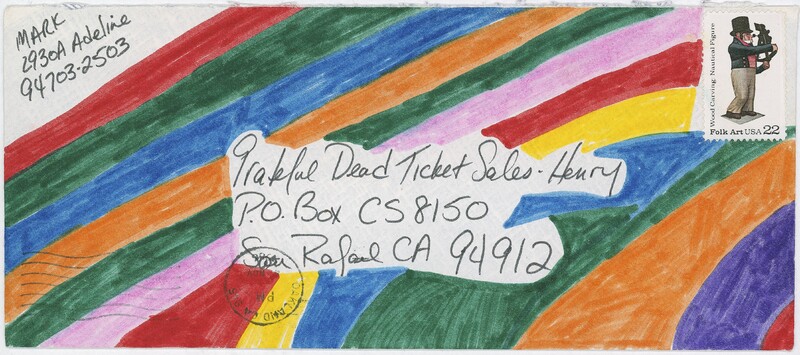 MARK
2930A Adeline
94703-2503
Wood Carving: Nautical Figure
Folk Art USA 22
Grateful Dead Ticket Sales - Henry
P.O. Box CS8150
San Rafael CA 94912
OAKLAND
PM